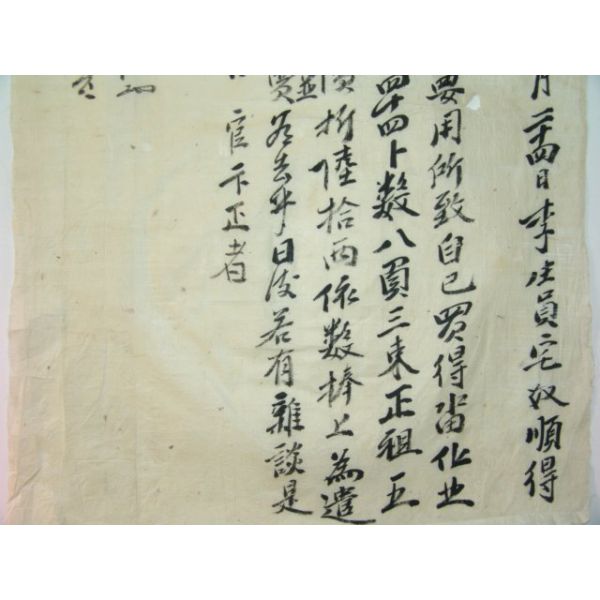 月二十四日李生員宅奴順得
要用所致自己買得畓化世
四十四卜數八圓三束正租五
價折陸拾兩依數捧上為遣
賣為去乎日後若有雜談是
官卞正者